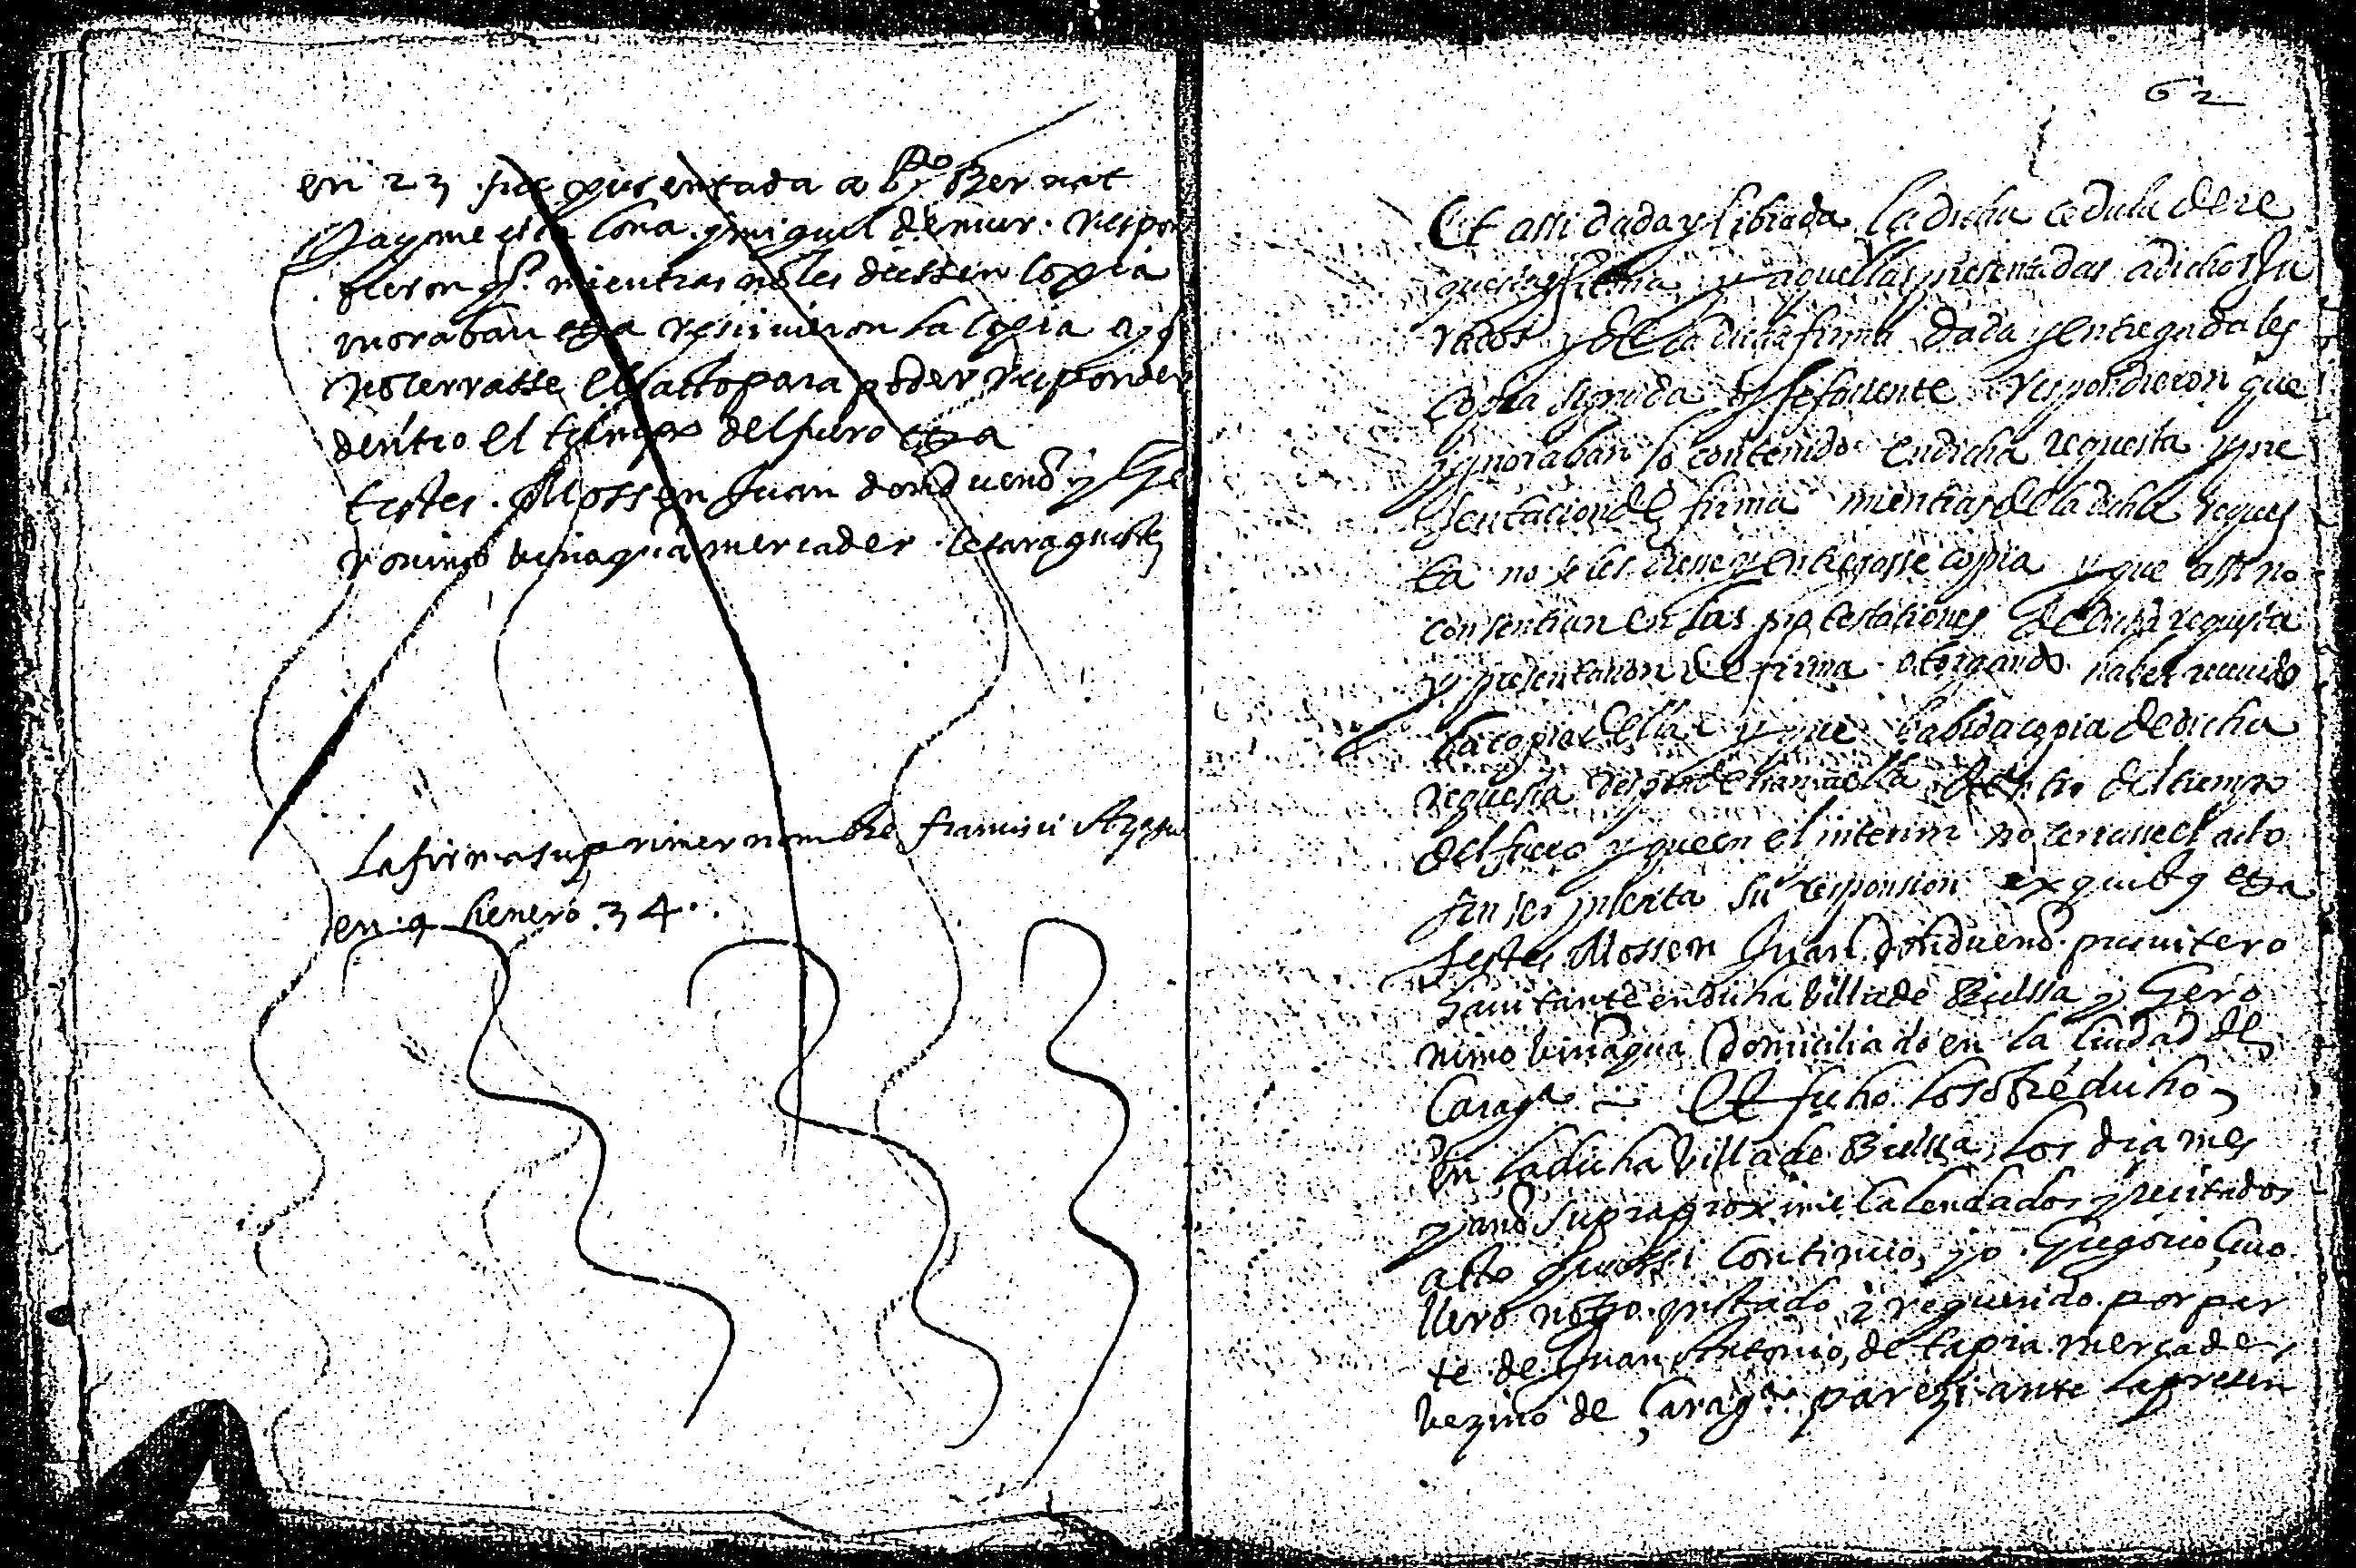 en 23 fue presentada a Bernat
Jayme de la Cona y miguel de mur. respon
dieron q. mientras no les diessen copia
ynoraban etza reciuieron la copia e q
no cerrasse el acto para poder responder
dentro el tiempo del fuero etza
testes. Mossen Juan donduenō y Ge
ronimo mercader
La firma su primer nombre francisci
en 9 henero 34.
62
Et assi dada y librada la dicha cedula de re
questa y firma y aquellas presentadas a dichos Ju
rados y de la dicha firma dada y entregadales
copia signada y fefaciente respondieron que
ygnoraban lo contenido en dicha requesta y pre
sentacion de firma mientras de la dicha reques
ta no se les diesse y entregasse copia y que assi no
consentian en las protestationes de dicha requesta
y presentation de firma otorgando haber reciuido
la copia della y que habida copia de dicha
requesta responderian a ella dentro del tiempo
del fuero y que en el interim no cerrasse el acto
sin ser inserta su responsion ex quibq etza
testes Mossen Juan Donduenō presuitero
hauitante en dicha villa de Bielssa y Gero
nimo domiciliado en la Ciudad de
Çaragª Et fecho lo sobredicho
en la dicha villa de Bielssa, los dia mes
y anō supra proxime calendados y recitados
acto quassi continuo, yo Gregorio
llero notro. instado i requerido por par
te de Juan Antonio, de tapia mercader
vezino de Çaragª. parezi ante la presen